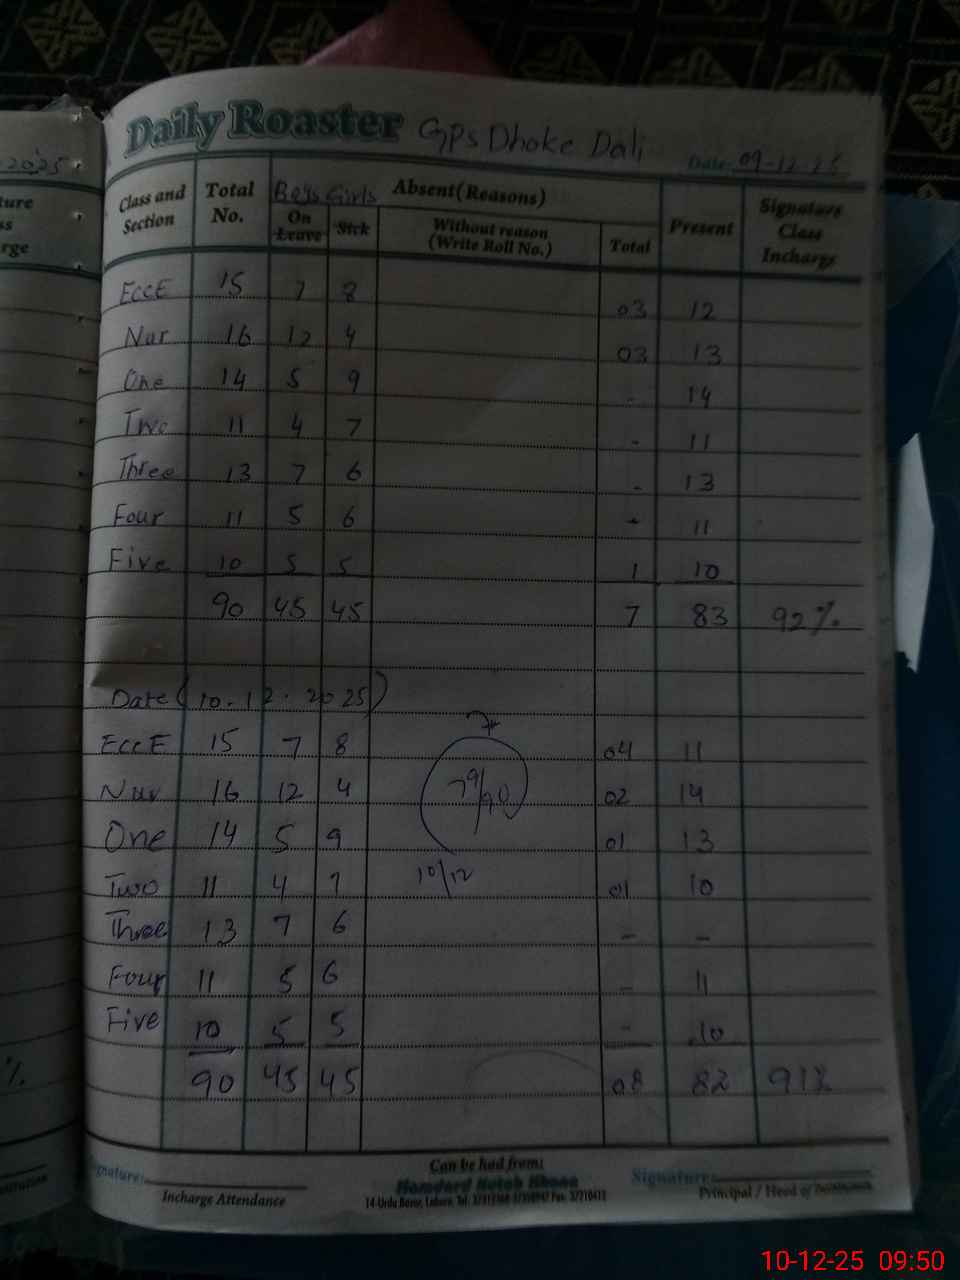 Daily Roaster GPS Dhoke Dali Date: 09-12-25
2025
Class and Section Total No. Boys Girls Absent (Reasons) Present Signature Class Incharge
On Leave Sick Without reason (Write Roll No.) Total
EccE 15 7 8 03 12
Nur 16 12 4 03 13
One 14 5 9 - 14
Two 11 4 7 - 11
Three 13 7 6 - 13
Four 11 5 6 - 11
Five 10 5 5 1 10
90 45 45 7 83 92%
Date (10.12.2025)
EccE 15 7 8 04 11
Nur 16 12 4 02 14
79/90
One 14 5 9 01 13
10/12
Two 11 4 7 01 10
Three 13 7 6 - -
Four 11 5 6 - 11
Five 10 5 5 - 10
90 45 45 08 82 91%
%
Signature: Incharge Attendance
Can be had from:
Hamdard Kutab Khana
14-Urdu Bazar, Lahore.
Signature: Principal / Head of Institution
10-12-25 09:50